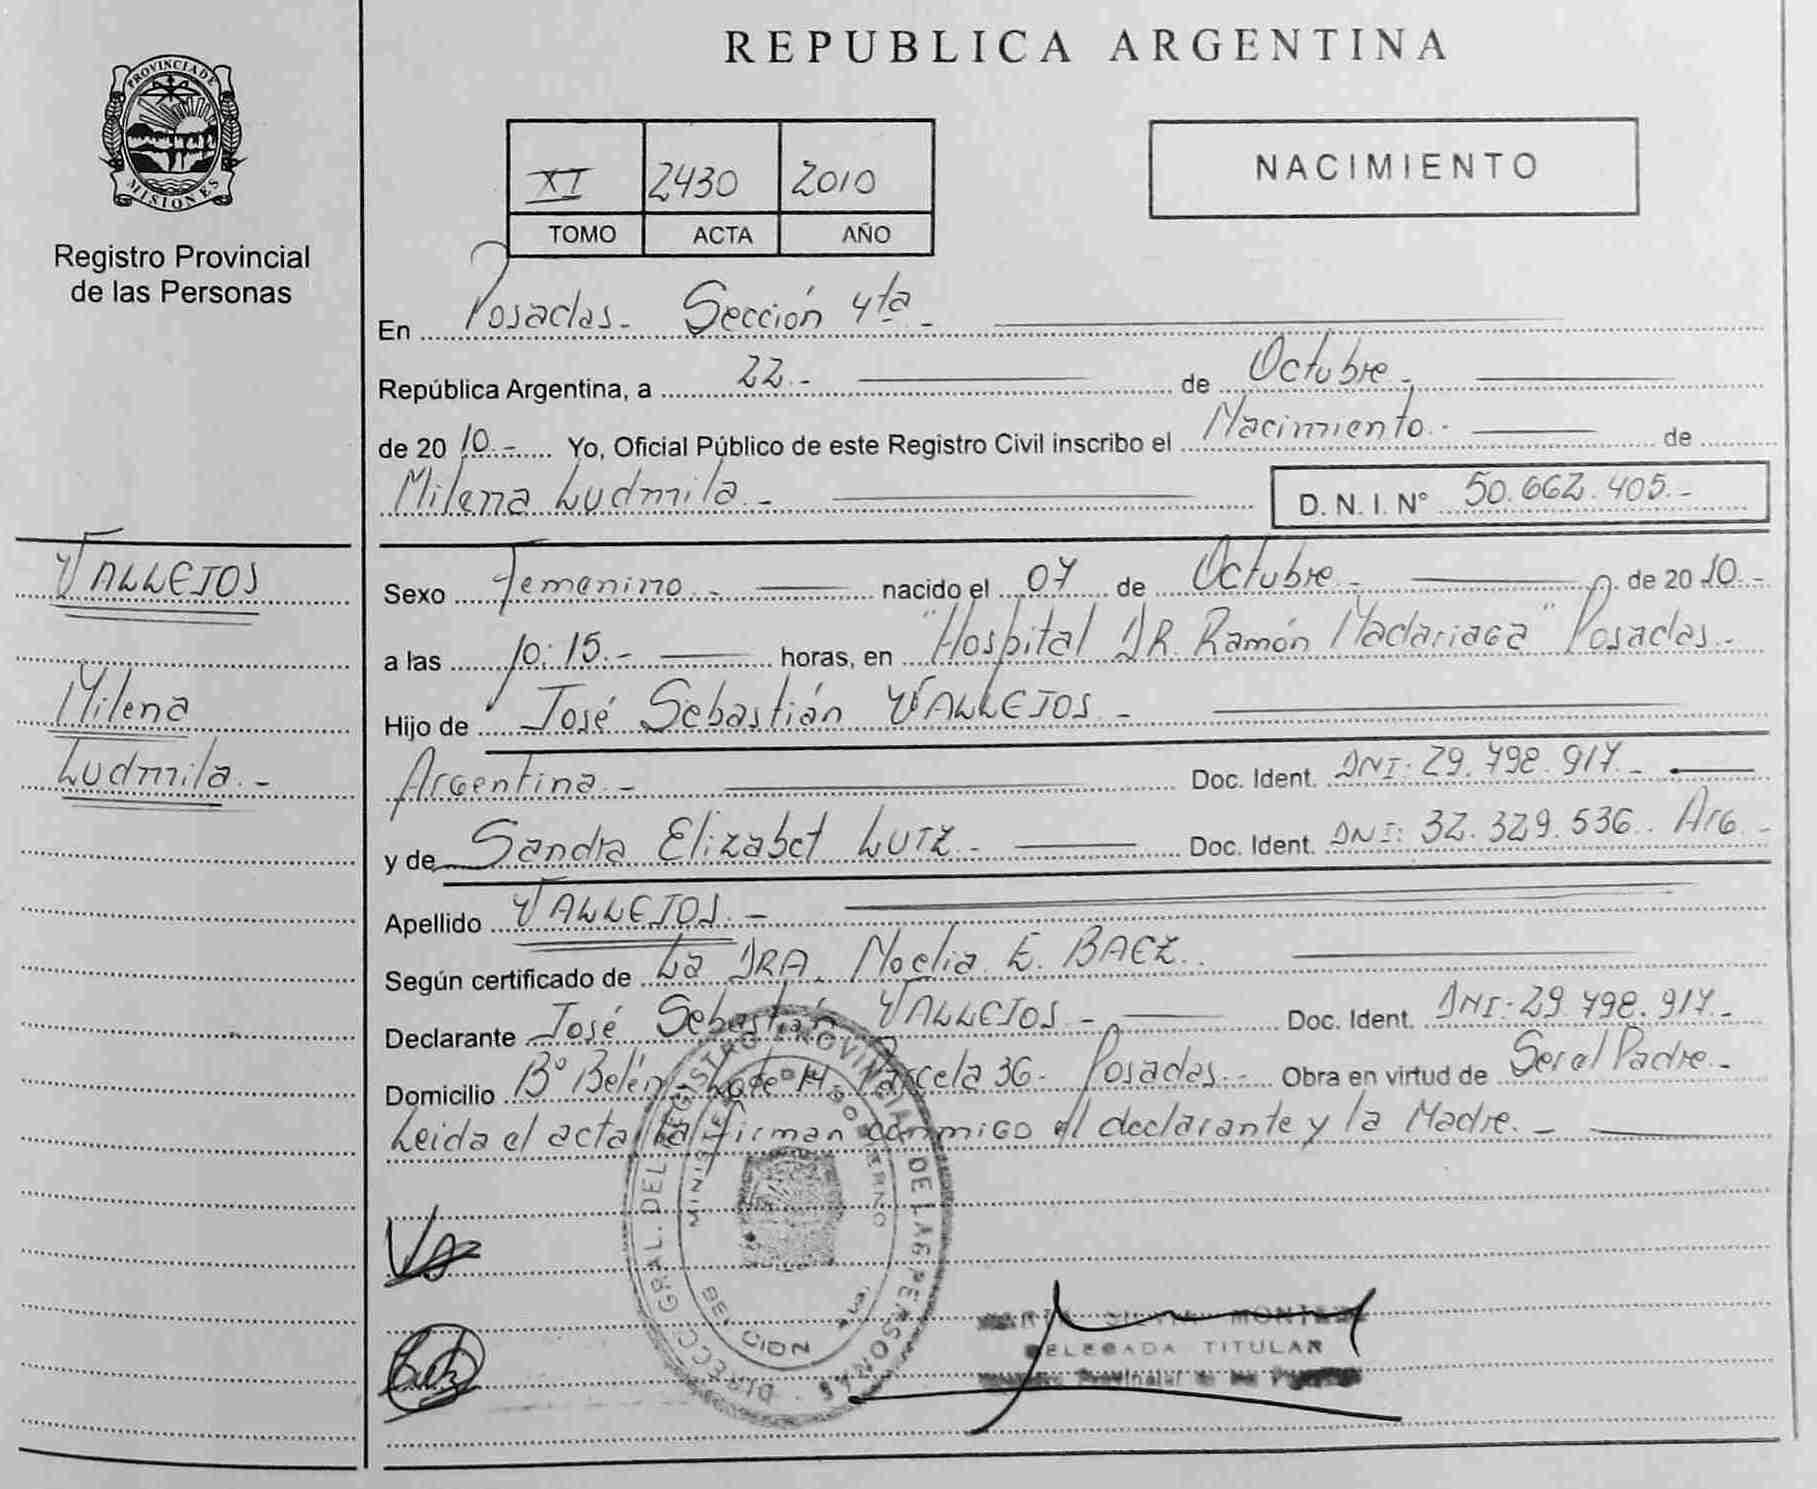 REPUBLICA ARGENTINA
PROVINCIA DE MISIONES
Registro Provincial
de las Personas
XI 2430 2010
TOMO ACTA AÑO
NACIMIENTO
En Posadas.- Sección 4ta.-
República Argentina, a 22.- de Octubre.-
de 20 10.- Yo, Oficial Público de este Registro Civil inscribo el Nacimiento.- de
Milena Ludmila.- D. N. I. N° 50.662.405.-
VALLEJOS
Milena
Ludmila.-
Sexo Femenino.- nacido el 07 de Octubre.- de 20 10.-
a las 10:15.- horas, en "Hospital DR. Ramón Madariaga" Posadas.-
Hijo de José Sebastián VALLEJOS.-
Argentina.- Doc. Ident. DNI: 29.798.917.-
y de Sandra Elizabet LUTZ.- Doc. Ident. DNI: 32.329.536.. Arg.-
Apellido VALLEJOS.-
Según certificado de La DRA. Noelia E. BAEZ..
Declarante José Sebastián VALLEJOS.- Doc. Ident. DNI: 29.798.917.-
Domicilio B° Belén- Lote 14- Parcela 36- Posadas.- Obra en virtud de Ser el Padre.-
Leida el acta, la firman conmigo el declarante y la Madre.-
DIRECC. GRAL. DEL REGISTRO PROVINCIAL DE LAS PERSONAS
MINISTERIO DE GOBIERNO
MONTE
DELEGADA TITULAR
Provincial de las